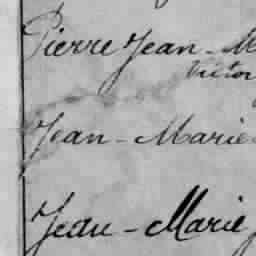 Pierre Jean - M
Victor
Jean - Marie
Jean - Marie